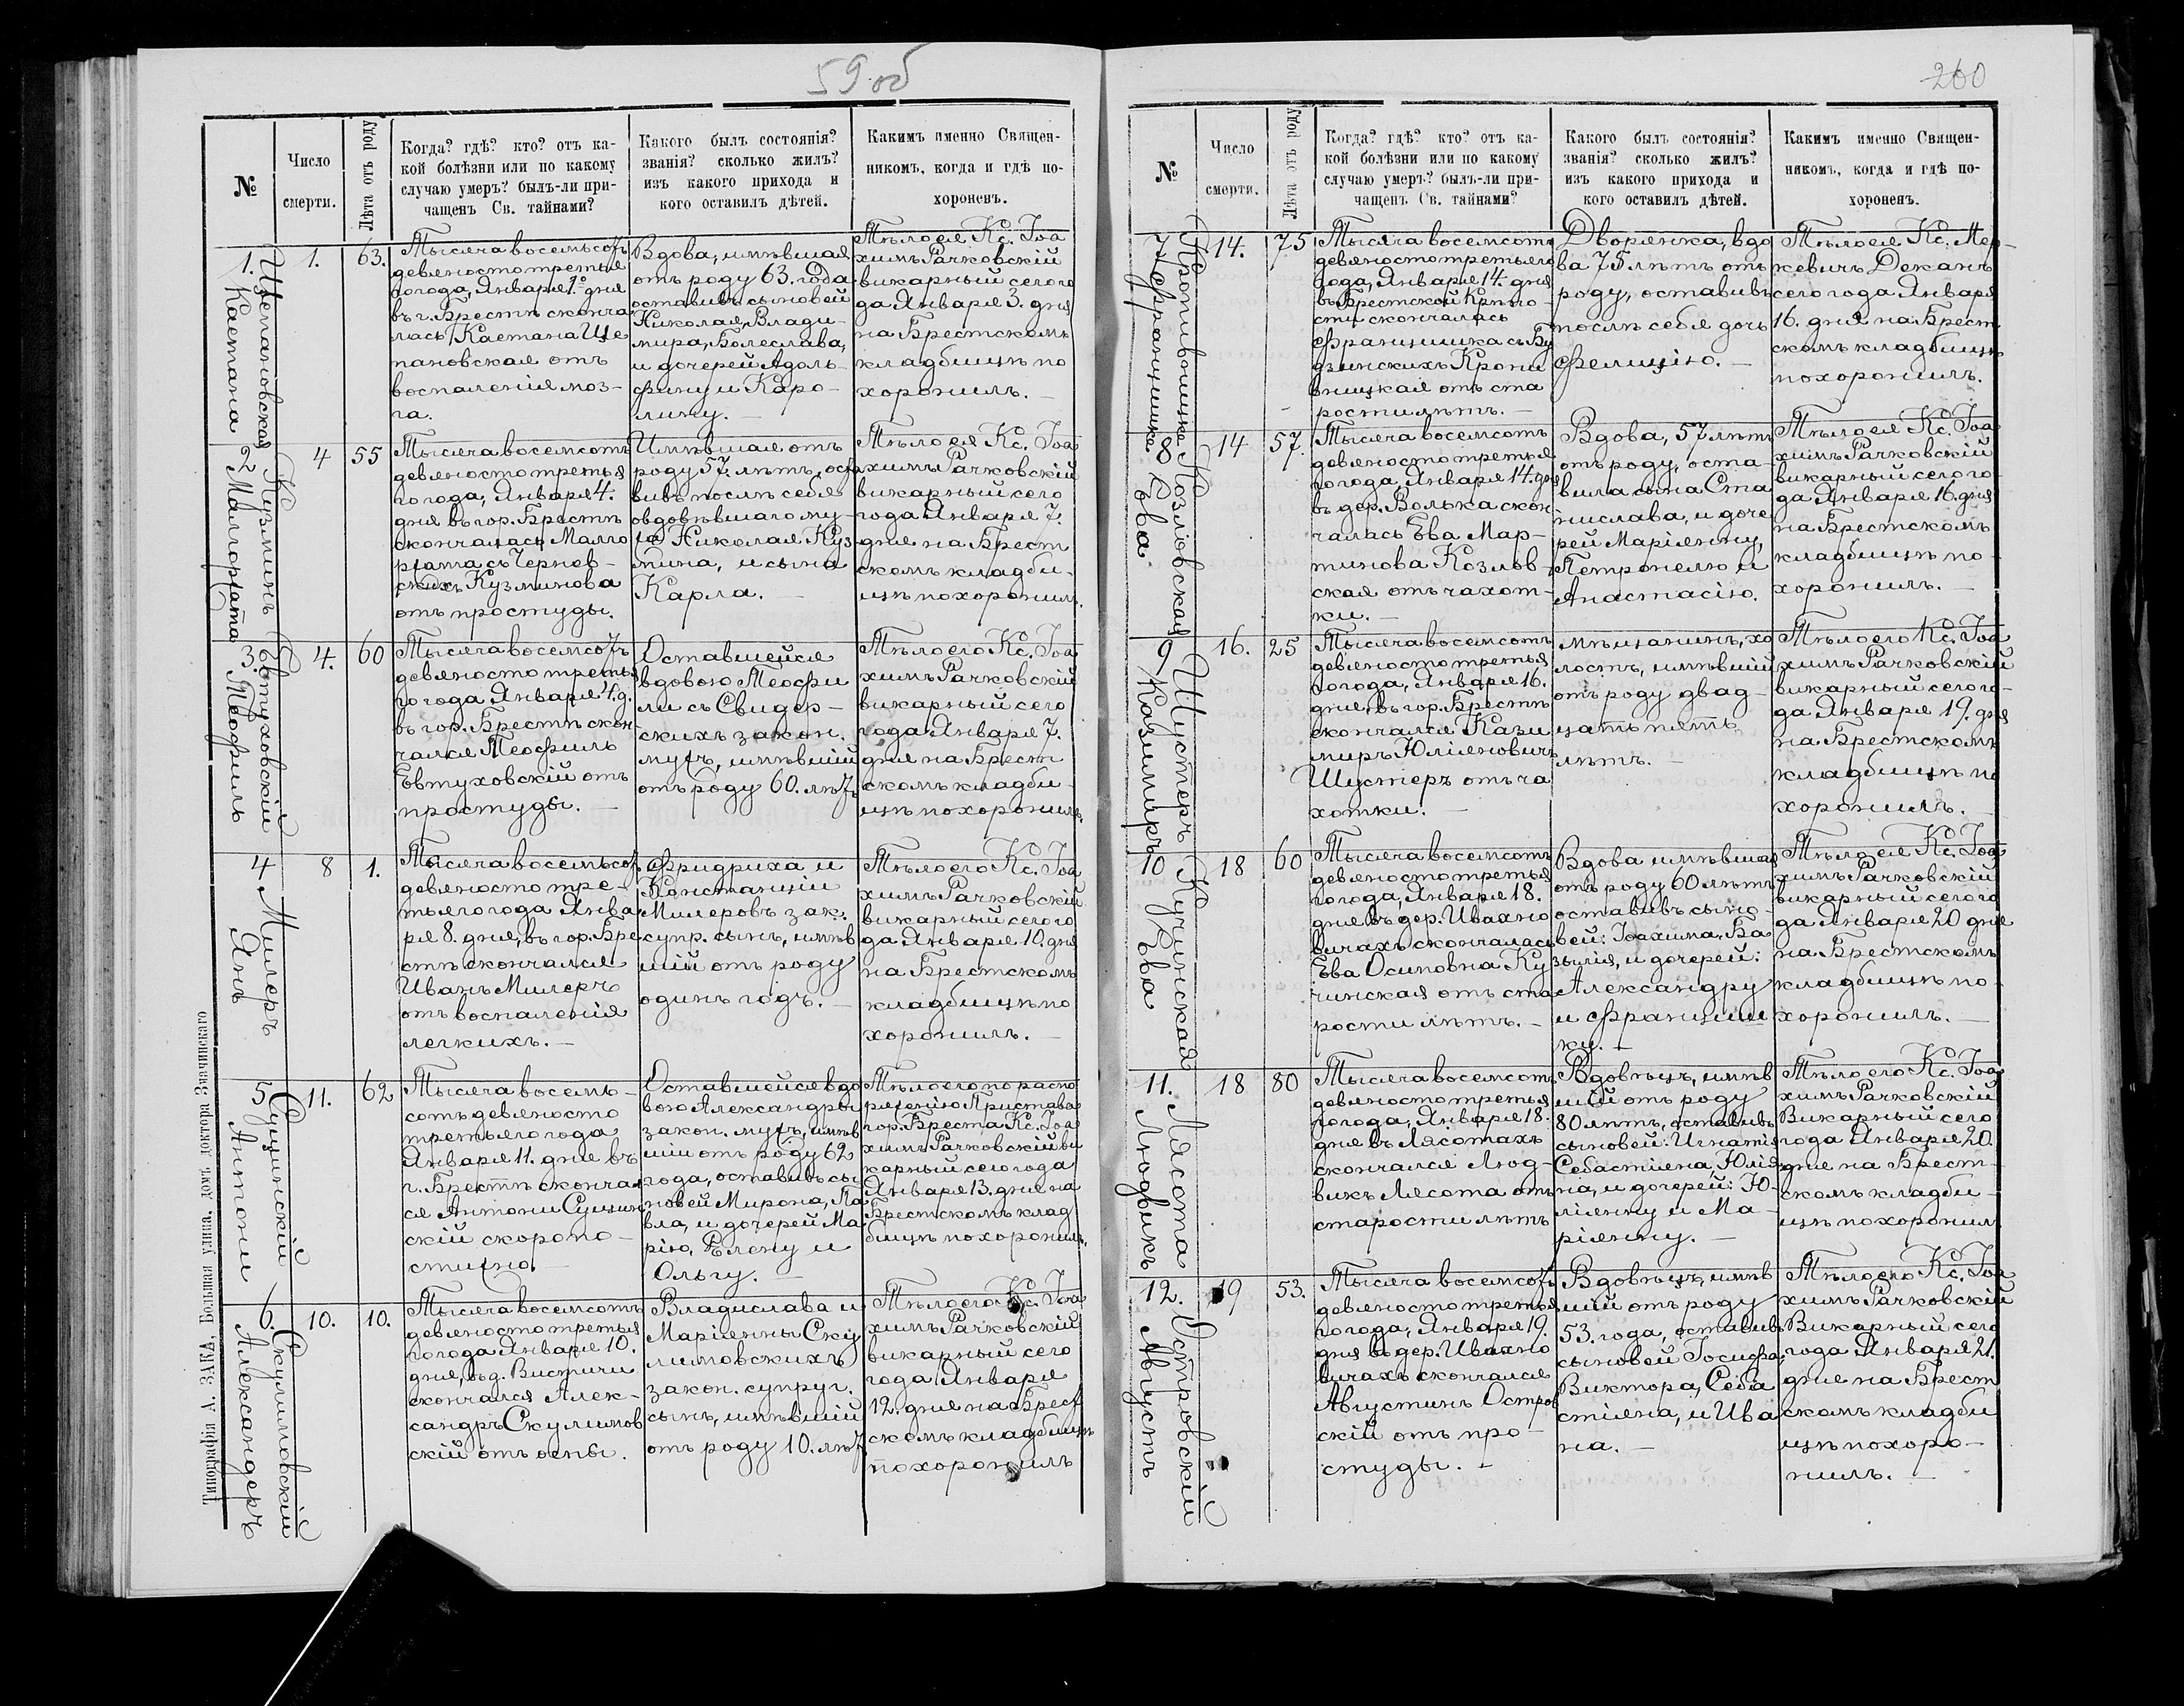 59 об
№
Число
смерти.
Лѣта отъ роду
Когда? гдѣ? кто? отъ ка-
кой болѣзни или по какому
случаю умеръ? былъ-ли при-
чащенъ Св. тайнами?
Какого былъ состоянія?
званія? сколько жилъ?
изъ какого прихода и
кого оставилъ дѣтей.
Какимъ именно Священ-
никомъ, когда и гдѣ по-
хороненъ.
1.
Щепановская
Каетана
1.
63.
Тысяча восемьсотъ
девяносто третья
го года, Января 1го дня
въ г. Брестѣ сконча
лась Каетана Ще
пановская отъ
воспаленія моз-
га.
Вдова, имѣвшая
отъ роду 63. года
оставивъ сыновей
Николая, Влади-
мира, Болеслава,
и дочерей Адоль-
фину и Каро-
лину. —
Тѣло ея Кс. Іоа
химъ Рачковскій
викарный сего го
да Января 3. дня
на Брестскомъ
кладбищѣ по
хоронилъ. —
2
Кузминъ
Малгоржата
4
55
Тысяча восемсотъ
девяносто третья
го года, Января 4.
дня въ гор. Брестѣ
скончалась Малго
ржата съ Чернев-
скихъ Кузминова
отъ простуды.
Имѣвшая отъ
роду 57. лѣтъ, оста
вивъ послѣ себя
овдовѣвшаго му-
жа Николая Куз-
мина, и сына
Карла. —
Тѣло ея Кс. Іоа
химъ Рачковскій
викарный сего
года Января 7.
дня на Брест
скомъ кладби-
щѣ похоронилъ.
3.
Евтуховскій
Теофиль
4.
60
Тысяча восемсотъ
девяносто третья
го года Января 4. д.
въ гор. Брестѣ скон-
чался Теофиль
Евтуховскій отъ
простуды. —
Оставшейся
вдовою Теофи
ли съ Свидер-
скихъ закон.
мужъ, имѣвшій
отъ роду 60. лѣтъ
Тѣло его Кс. Іоа
химъ Рачковскій
викарный сего
года Января 7.
дня на Брест
скомъ кладби-
щѣ похоронилъ.
4
Милеръ
Янъ
8
1.
Тысяча восемьсот
девяносто тре-
тьяго года Янва
ря 8. дня, въ гор. Бре
стѣ скончался
Иванъ Милеръ
отъ воспаленія
легкихъ. —
Фридриха и
Констанціи
Милеровъ зак.
супр. сынъ, имѣв
шій отъ роду
одинъ годъ. —
Тѣло его Кс. Іоа
химъ Рачковскій
викарный сего го
да Января 10. дня
на Брестскомъ
кладбищѣ по
хоронилъ. —
5
Сущинскій
Антони
11.
62
Тысяча восемь-
сотъ девяносто
третьяго года
Января 11. дня въ
г. Брестѣ скончал
ся Антони Сущин
скій скоропо-
стижно. —
Оставшейся вдо
вою Александры
закон. мужъ, имѣв
шій отъ роду 62
года, оставивъ сы
новей Мирона, Па
вла, и дочерей Ма
рію, Елену и
Ольгу. —
Тѣло его по распо
ряженію Пристава
гор. Бреста Кс. Іоа
химъ Рачковскій ви
карный сего года
Января 13. дня на
Брестскомъ клад
бищѣ похоронилъ.
6.
Скулимовскій
Александеръ
10.
10.
Тысяча восемсотъ
девяносто третья
го года Января 10.
дня, въ д. Вистичи
скончался Алек-
сандръ Скулимов
скій отъ оспы.
Владислава и
Маріянны Ску
лимовскихъ
закон. супруг.
сынъ, имѣвшій
отъ роду 10. лѣт
Тѣло его Кс. Іоа
химъ Рачковскій
викарный сего
года Января
12. дня на Брест
скомъ кладбищѣ
похоронилъ
Типографія А. ЗАКА, Большая улица, домъ доктора Значинскаго
260
№
Число
смерти.
Лѣта отъ роду
Когда? гдѣ? кто? отъ ка-
кой болѣзни или по какому
случаю умеръ? былъ-ли при-
чащенъ Св. тайнами?
Какого былъ состоянія?
званія? сколько жилъ?
изъ какого прихода и
кого оставилъ дѣтей.
Какимъ именно Священ-
никомъ, когда и гдѣ по-
хороненъ.
7
Францишка
14.
75
Тысяча восемсотъ
девяносто третьяго
года, Января 14. дня
въ Брестской Крѣпо-
сти скончалась
Францишка съ Бу
дзинскихъ Кропи
вницкая отъ ста
рости лѣтъ. —
Дворянка, вдо
ва 75 лѣтъ отъ
роду, оставивъ
послѣ себя дочь
Фелицію. —
Тѣло ея Кс. Мер-
кевичъ Деканъ
сего года Января
16. дня на Брест
скомъ кладбищѣ
похоронилъ.
8
Козловская
Ева.
14
57.
Тысяча восемсотъ
девяносто третья
го года, Января 14. дня
въ дер. Волька скон
чалась Ева Мар-
тинова Козлов-
ская отъ чахот-
ки. —
Вдова, 57 лѣтъ
отъ роду, оста-
вила сына Ста
нислава, и доче
рей Маріянну,
Петронелю и
Анастасію.
Тѣло ея Кс. Іоа
химъ Рачковскій
викарный сего го
да Января 16. дня
на Брестскомъ
кладбищѣ по-
хоронилъ. —
9
Шустеръ
Казимиръ
16.
25
Тысяча восемсотъ
девяносто третья
го года, Января 16.
дня, въ гор. Брестѣ
скончался Кази
миръ Юліяновичъ
Шустеръ отъ ча
хотки. —
мѣщанинъ, хо
лостъ, имѣвшій
отъ роду двад-
цать пять
лѣтъ. —
Тѣло его Кс. Іоа
химъ Рачковскій
викарный сего го-
да Января 19. дня
на Брестскомъ
кладбищѣ по
хоронилъ. —
10
Кучинская
Ева
18
60
Тысяча восемсотъ
девяносто третья
го года, Января 18.
дня въ дер. Ивахно
вичахъ скончалась
Ева Осиповна Ку
чинская отъ ста
рости лѣтъ. —
Вдова имѣвшая
отъ роду 60 лѣтъ
оставивъ сыно-
вей: Іоахима, Ба
зылія, и дочерей:
Александру
и Франциш
ку. —
Тѣло ея Кс. Іоа
химъ Рачковскій
викарный сего го
да Января 20 дня
на Брестскомъ
кладбищѣ по-
хоронилъ. —
11.
Лясота
Людвикъ
18
80
Тысяча восемсотъ
девяносто третья
го года, Января 18.
дня въ Лясотахъ
скончался Люд-
викъ Лясота отъ
старости лѣтъ
Вдовецъ, имѣв
шій отъ роду
80 лѣтъ, оставивъ
сыновей: Игнатія
Себастіяна, Юлія
на, и дочерей: Ю-
ліянну и Ма-
ріянну. —
Тѣло его Кс. Іоа
химъ Рачковскій
Викарный сего
года Января 20.
дня на Брест-
скомъ кладби-
щѣ похоронил
12.
Островскій
Августъ
19
53.
Тысяча восемсотъ
девяносто третья
го года, Января 19.
дня въ дер. Ивахно
вичахъ скончался
Августинъ Остров
скій отъ про-
студы. —
Вдовецъ, имѣв
шій отъ роду
53. года, оставивъ
сыновей Іосифа,
Виктора, Себа
стіяна, и Ива
на. —
Тѣло его Кс. Іоа
химъ Рачковскій
Викарный сего
года Января 21.
дня на Брест
скомъ кладби
щѣ похоро-
нилъ. —